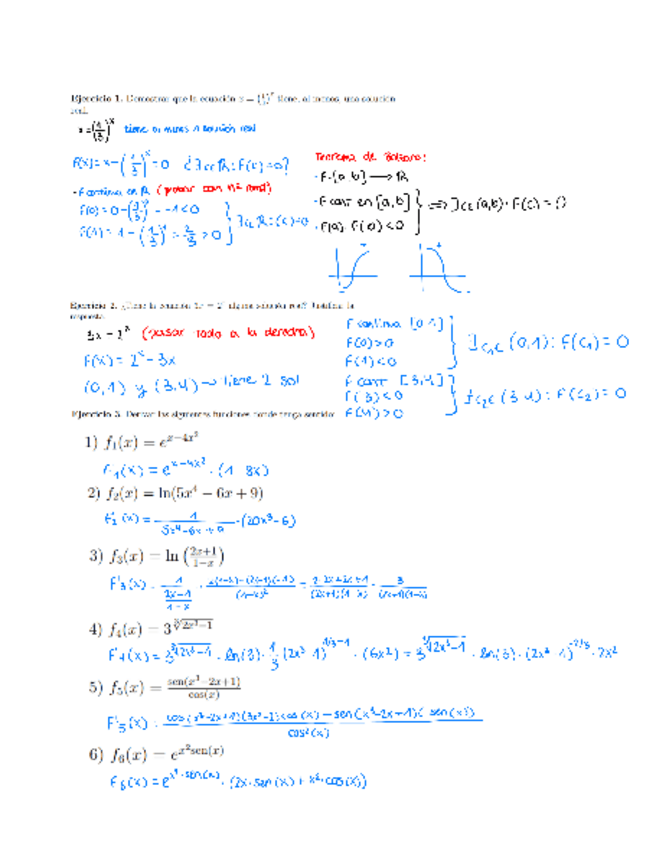 Ejercicio 1. Demostrar que la ecuación x = (1/3)^x tiene, al menos, una solución
real.
x = (1/3)^x tiene al menos 1 solución real
F(x) = x - (1/3)^x = 0 ¿∃ c∈ℝ : F(c) = 0?
Teorema de Bolzano:
· F: [a, b] → ℝ
· F continua en ℝ
· F cont en [a, b]
· F(a) · F(b) < 0
⟹ ∃ c∈(a,b) : F(c) = 0
F(0) = 0 - (1/3)^0 = -1 < 0
F(1) = 1 - (1/3)^1 = 2/3 > 0
∃ c∈ℝ : F(c) = 0
Ejercicio 2. ¿Tiene la ecuación 3x = 2^x alguna solución real? Justifica la
respuesta.
3x = 2^x (pasar todo a la derecha)
F(x) = 2^x - 3x
(0, 1) y (3, 4) → tiene 2 sol
F continua [0, 1]
F(0) > 0
F(1) < 0
∃ c₁∈(0, 1) : F(c₁) = 0
F cont [3, 4]
F(3) < 0
F(4) > 0
∃ c₂∈(3, 4) : F(c₂) = 0
Ejercicio 3. Derivar las siguientes funciones donde tenga sentido:
1) f₁(x) = e^(x-4x²)
F'₁(x) = e^(x-4x²) · (1 - 8x)
2) f₂(x) = ln(5x⁴ - 6x + 9)
F'₂(x) = 1/(5x⁴-6x+9) · (20x³ - 6)
3) f₃(x) = ln((2x+1)/(1-x))
4) f₄(x) = 3^(∛(2x³-1))
F'₄(x) = 3^(∛(2x³-1)) · ln(3) · 1/3 (2x³-1)^(1/3-1) · (6x²) = 3^(∛(2x³-1)) · ln(3) · (2x³-1)^(-2/3) · 2x²
5) f₅(x) = sen(x³-2x+1)/cos(x)
F'₅(x) = (cos(x³-2x+1)(3x²-2)cos(x) - sen(x³-2x+1)(-sen(x)))/cos²(x)
6) f₆(x) = e^(x²sen(x))
F₆(x) = e^(x²·sen(x)) · (2x·sen(x) + x²·cos(x))